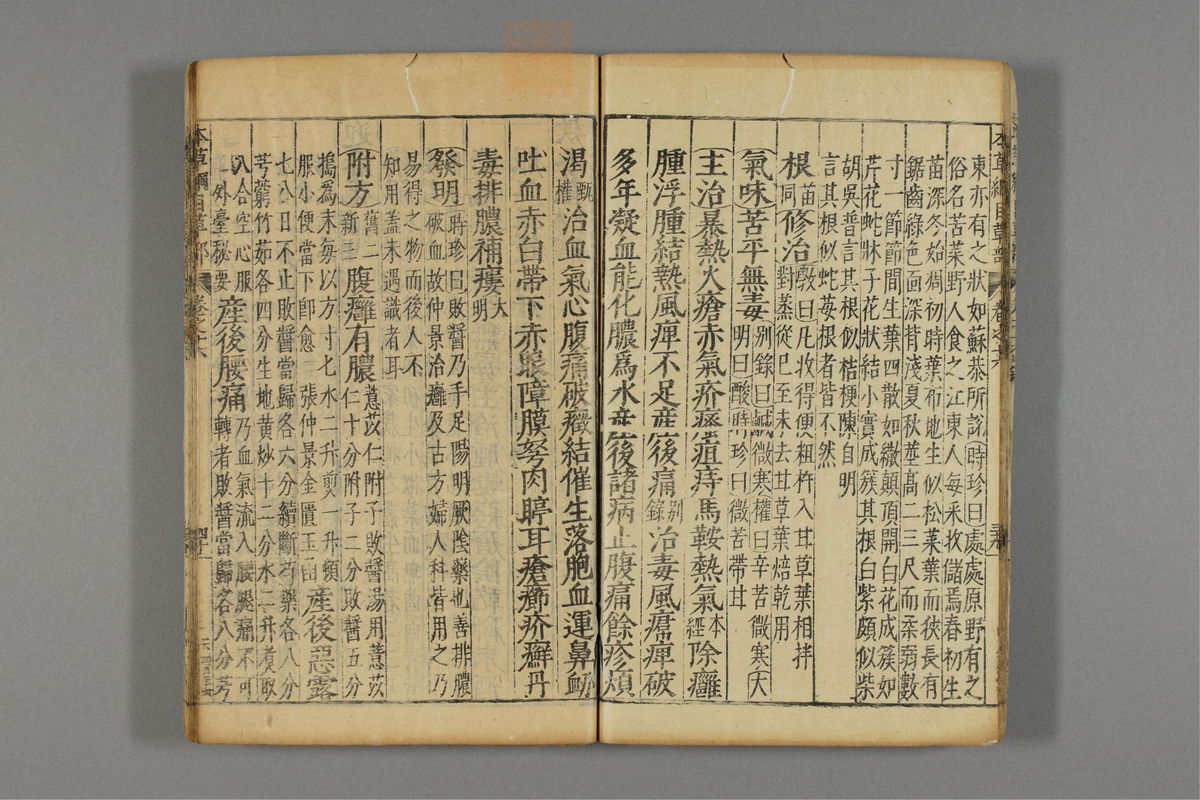 東亦有之狀如蘇恭所說時珍曰處處原野有之
俗名苦菜野人食之江東人每采收儲焉春初生
苗深冬始凋初時葉布地生似菘菜葉而狹長有
鋸齒綠色面深背淺夏秋莖高二三尺而柔弱數
寸一節節間生葉四散如繖顛頂開白花成簇如
芹花蛇牀子花狀結小實成簇其根白紫頗似柴
胡吳普言其根似桔梗陳自明
言其根似蛇莓根者皆不然
根苗同修治斆曰凡收得便粗杵入甘草葉相拌
對蒸從巳至未去甘草葉焙乾用
氣味苦平無毒別錄曰鹹微寒權曰辛苦微寒大
明曰酸時珍曰微苦帶甘
主治暴熱火瘡赤氣疥瘙疽痔馬鞍熱氣本經除癰
腫浮腫結熱風痺不足産後痛別錄治毒風𤸷痺破
多年凝血能化膿爲水産後諸病止腹痛餘疹煩
渴甄權治血氣心腹痛破癥結催生落胞血運鼻衄
吐血赤白帶下赤眼障膜努肉聤耳瘡癤疥癬丹
毒排膿補瘻大明
發明時珍曰敗醬乃手足陽明厥陰藥也善排膿
破血故仲景治癰及古方婦人科皆用之乃
易得之物而後人不
知用蓋未遇識者耳
附方舊二新三腹癰有膿薏苡仁附子敗醬湯用薏苡
仁十分附子二分敗醬五分
搗爲末每以方寸匕水二升煎一升頓
服小便當下卽愈張仲景金匱玉函産後惡露
七八日不止敗醬當歸各六分續斷芍藥各八分
芎藭竹茹各四分生地黄炒十二分水二升煮取
八合空心服
外臺秘要産後腰痛乃血氣流入腰腿痛不可
轉者敗醬當歸各八分芎